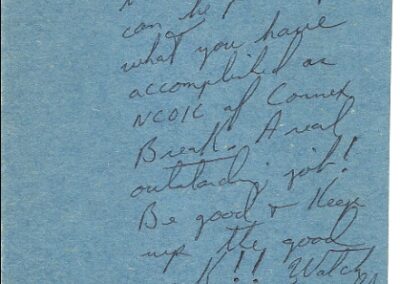 can be
what you have
accomplished as
NCOIC of Connex
Break. A real
outstanding job!
Be good & Keep
up the good
!! Watch